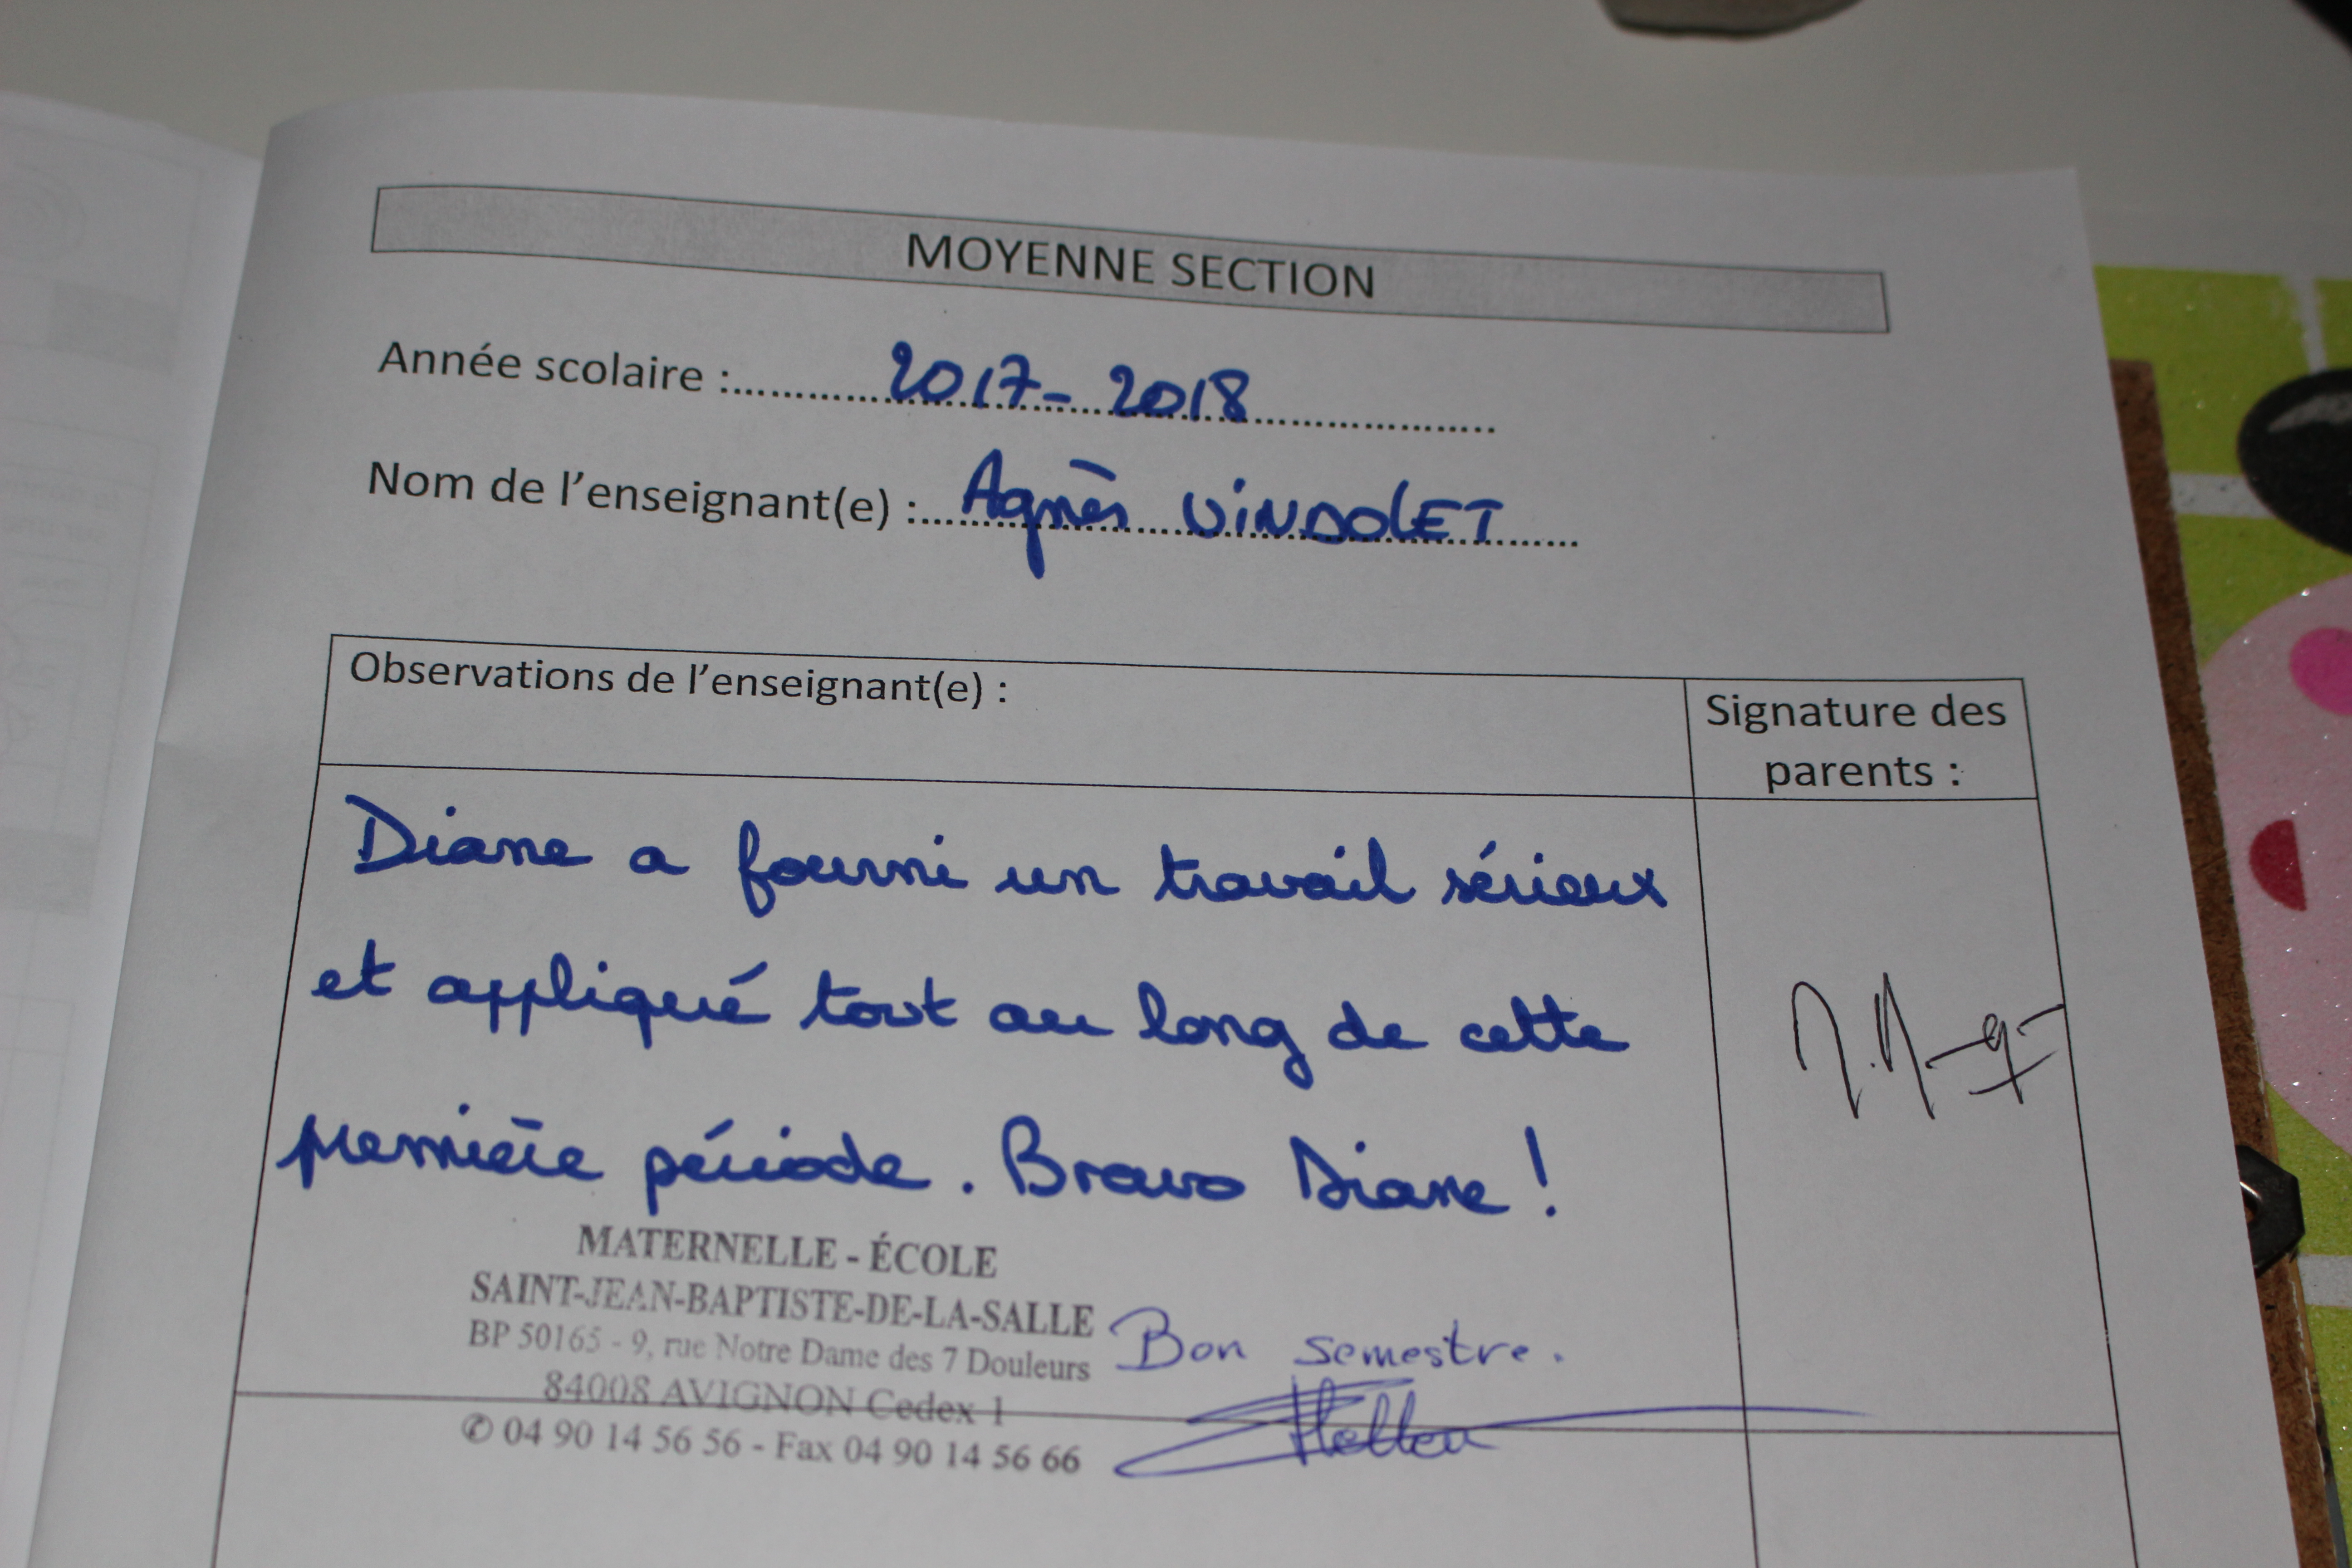 MOYENNE SECTION
Année scolaire : 2017-2018
Nom de l'enseignant(e) : Agnès VINDOLET
Observations de l'enseignant(e) :
Signature des
parents :
Diane a fourni un travail sérieux
et appliqué tout au long de cette
première période. Bravo Diane !
MATERNELLE - ÉCOLE
SAINT-JEAN-BAPTISTE-DE-LA-SALLE
BP 50165 - 9, rue Notre Dame des 7 Douleurs
84008 AVIGNON Cedex 1
✆ 04 90 14 56 56 - Fax 04 90 14 56 66
Bon semestre.